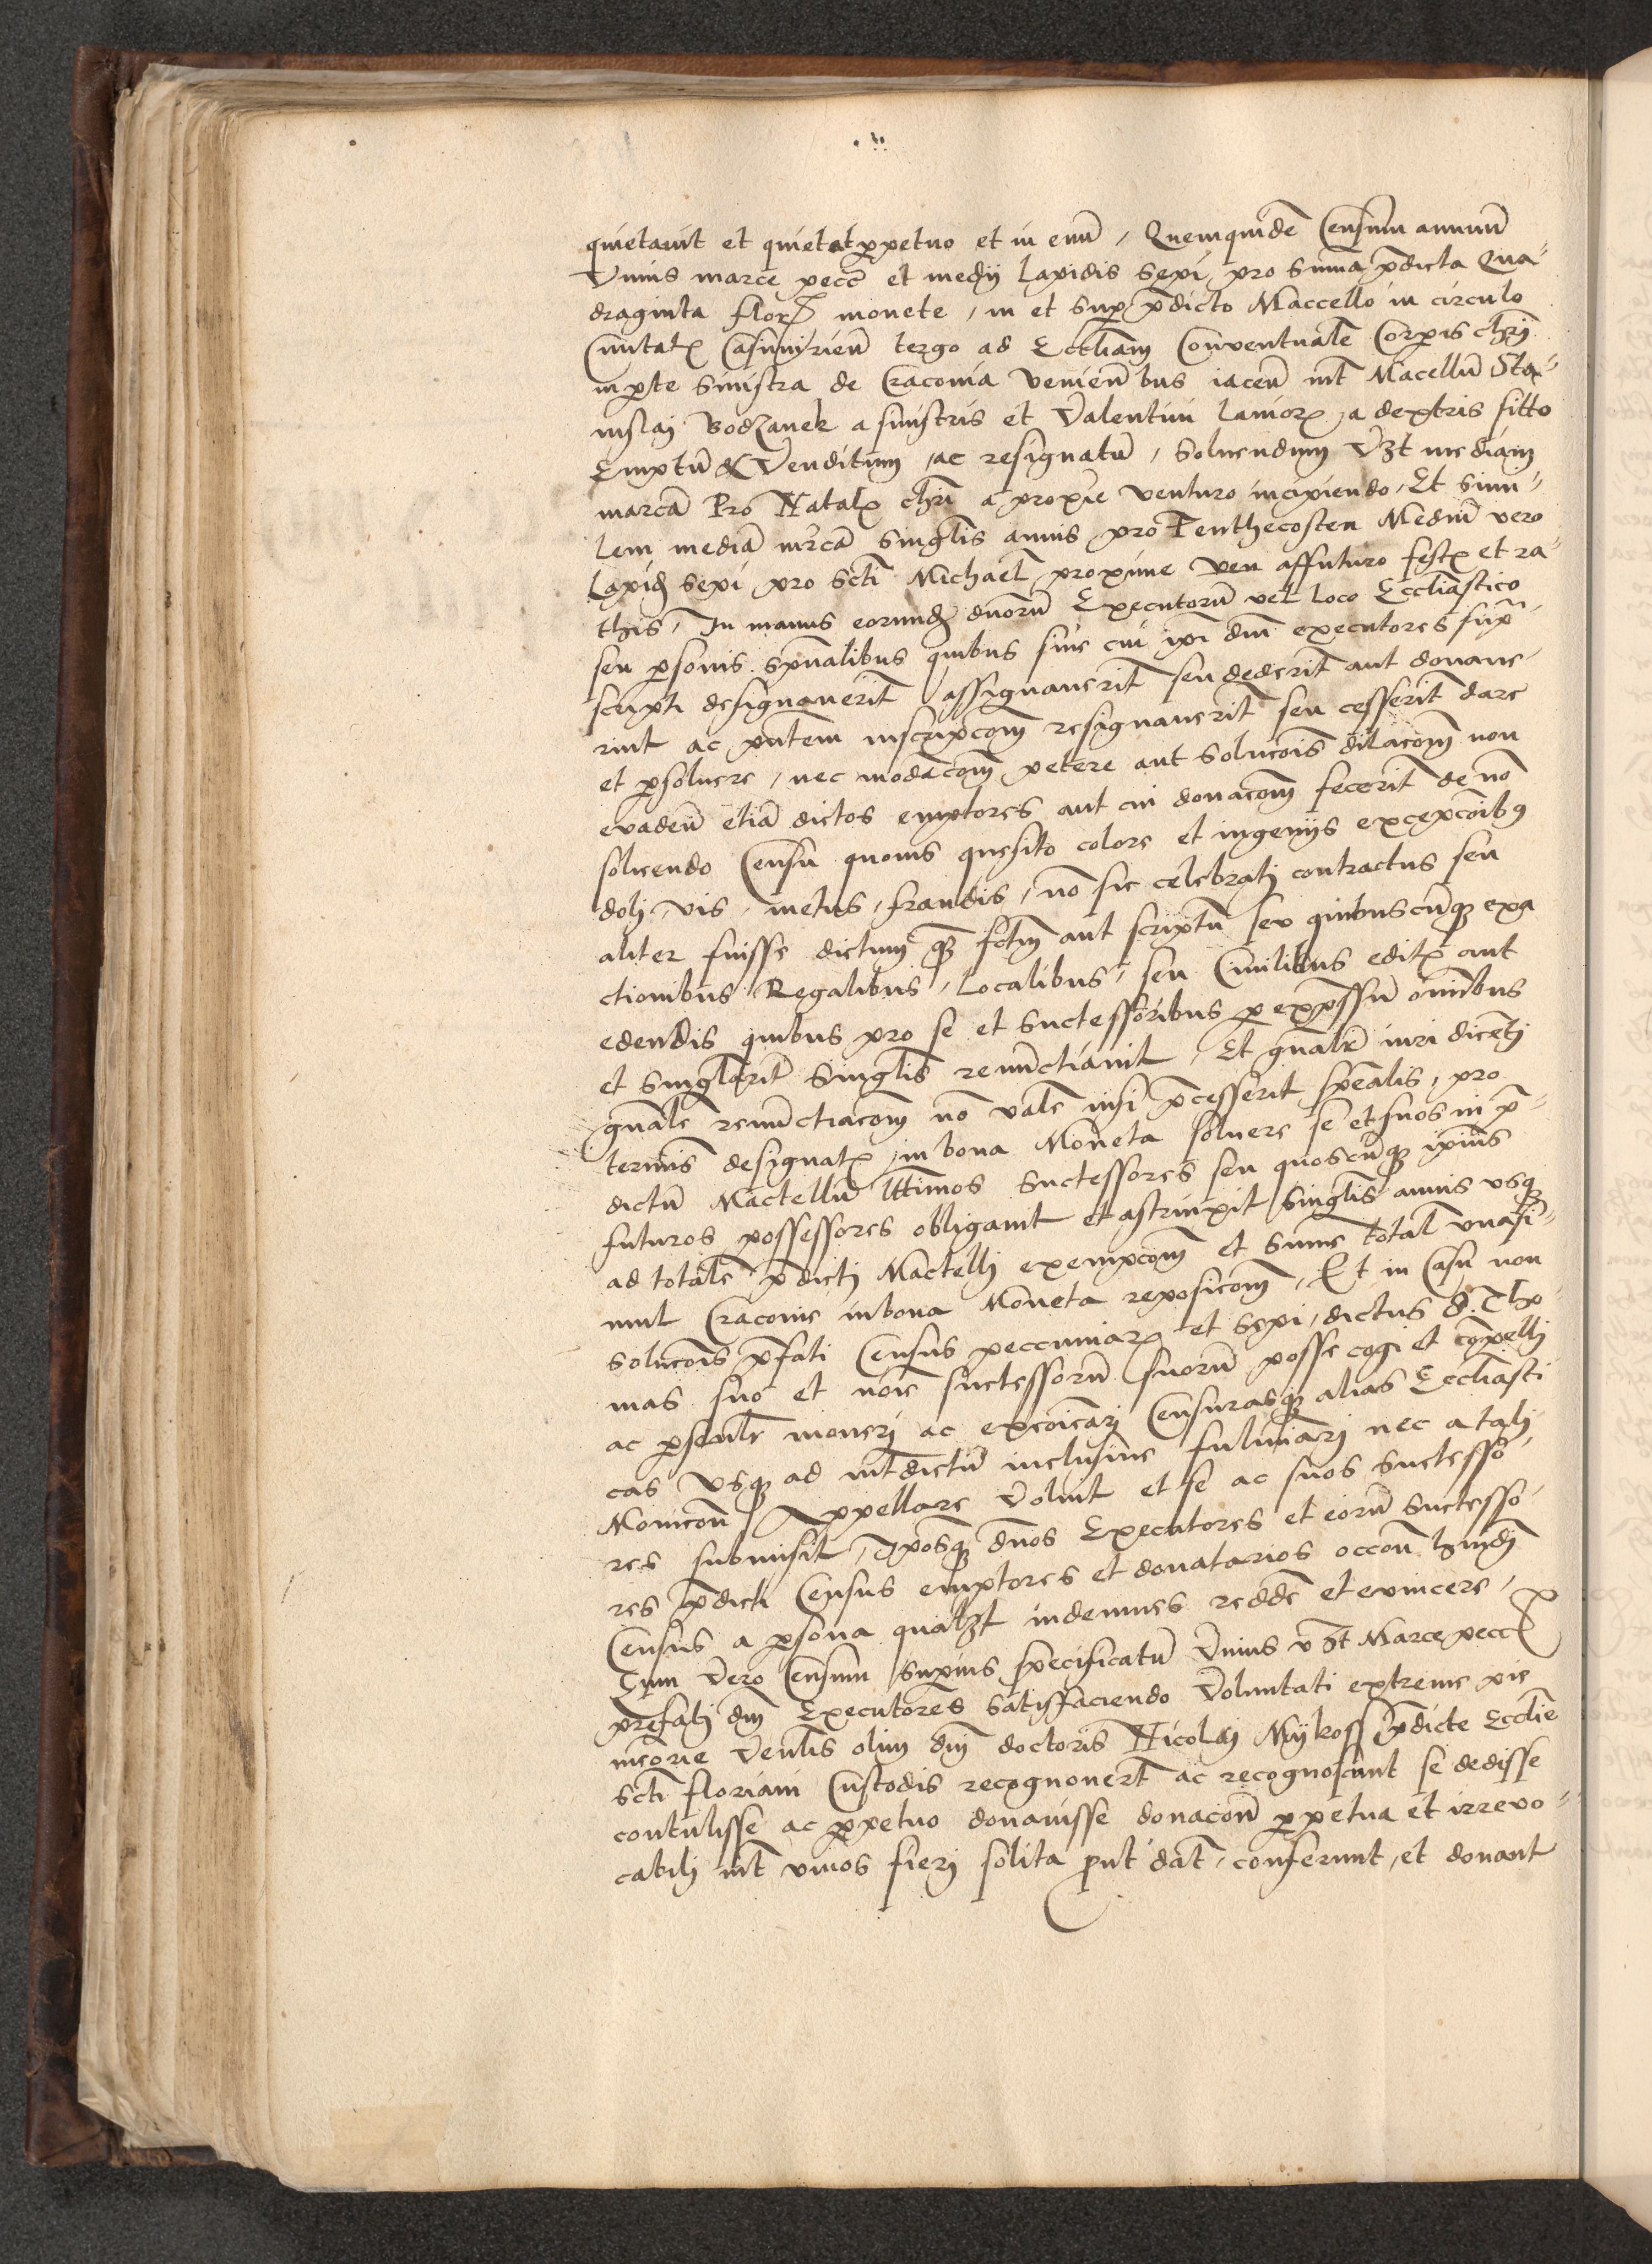 quietavit et quietat ꝑpetuo et in evū, Quemquidē Censum annuū
Unius marce pecc̄ et medij lapidis sepi, pro summa p̄dicta Qua-
draginta florꝭ monete, in et suꝑ p̄dicto Maccello in circulo
Civitatꝭ Casimirieñ tergo ad Eccliam Conventualē Corꝑis chr̄i
in ꝑte sinistra de Craconia venieñtbus iaceñ int̄ Macellū Sta-
nislaj Bodzanek a sinistris et Valentini laniorꝭ a dextris sitto
Emptū & Venditum, ac resignatū, solvendum Vꝫt mediam
marcā Pro Natalꝭ chr̄i a proxie venturo incipiendo, Et simi-
lem mediā mꝛcā singlis annis pro Penthecosten Mediū vero
Lapidē sepi pro Scti Michael̄ proxime ven affuturo festꝭ et ra-
this, In manus eorundē dnorū Executorū vel loco Eccliastico
seu ꝑsonis spūalibus quibus sive cui ipi dñi executores sup̄
scripti designaverit̄ assignaverit̄ seu dederit̄ aut donave-
rint ac pn̄tem inscripcōm resignaverit̄ seu cesserit̄ dare
et ꝑsolvere, nec modācōm petere aut solucōis dilacōm non
evadeñ etiā dictos emptores aut cui donacōm fecerit̄ de nō
solvendo Censu quovis quesito colore et ingenijs excepcōibꝰ
dolj, vis, metus, fraudis, nō sic celebratj contractus seu
aliter fuisse dictum qꝫ fctm̄ aut scriptū seu quibuscūqꝫ exa
ctionibus Regalibus, Localibus, seu Civilibus editꝭ aut
edendis quibus pro se et Suctessoribus ꝑ expssū omnibus
et singlarit̄ singlis renunctiavit, Et gn̄alr̄ iuri dicētj
gn̄alē renunctiacōm nō valē nisi p̄cesserit spēalis, pro
termīs designatꝭ, in bona Moneta solvere se et suos in p̄-
dictū Mactellū lttimos suctessores seu quoscūqꝫ ipius
futuros possessores obligavit et astrinxit singlis annis usqꝫ
ad totalē p̄dictj Mactellj exempcōm et sume total̄ unasi-
mul Craconie in bona Moneta reposicōm, Et in Casu non
solucōis p̄fati Census peccuniarꝭ et sepi, dictus d. Tho-
mas suo et noīe suctessorū suorū posse cogi et compellj
ac ꝑsonalr̄ monerj ac excōicarj Censurasqꝫ alias Eccliasti
cas usqꝫ ad int̄dictū inclusive fulminarj nec a talj
Monicoñ Appellare voluit et se ac suos suctesso-
res submisit, Iposqꝫ dnos Executores et eorū suctesso-
res p̄dicti Census emptores et donatarios occoñ hmōj
Census a ꝑsona qualꝫt indemnes reddē et evincere,
Quem Vero Censum suꝑius specificatū Unius vꝫt Marce pecc̄
p̄refatj dñj Executores satisfaciendo Voluntati extreme pie
mēorie Venlis olim dñj doctoris Nicolaj Mykoss p̄dicte Ecclie
scti floriani Custodis recognovert̄ ac recognoscunt se dedisse
contulisse ac ꝑpetuo donavisse donacoñ ꝑpetua et irrevo-
cabilj int̄ vivos fierj solita put dāt, conferunt, et donant